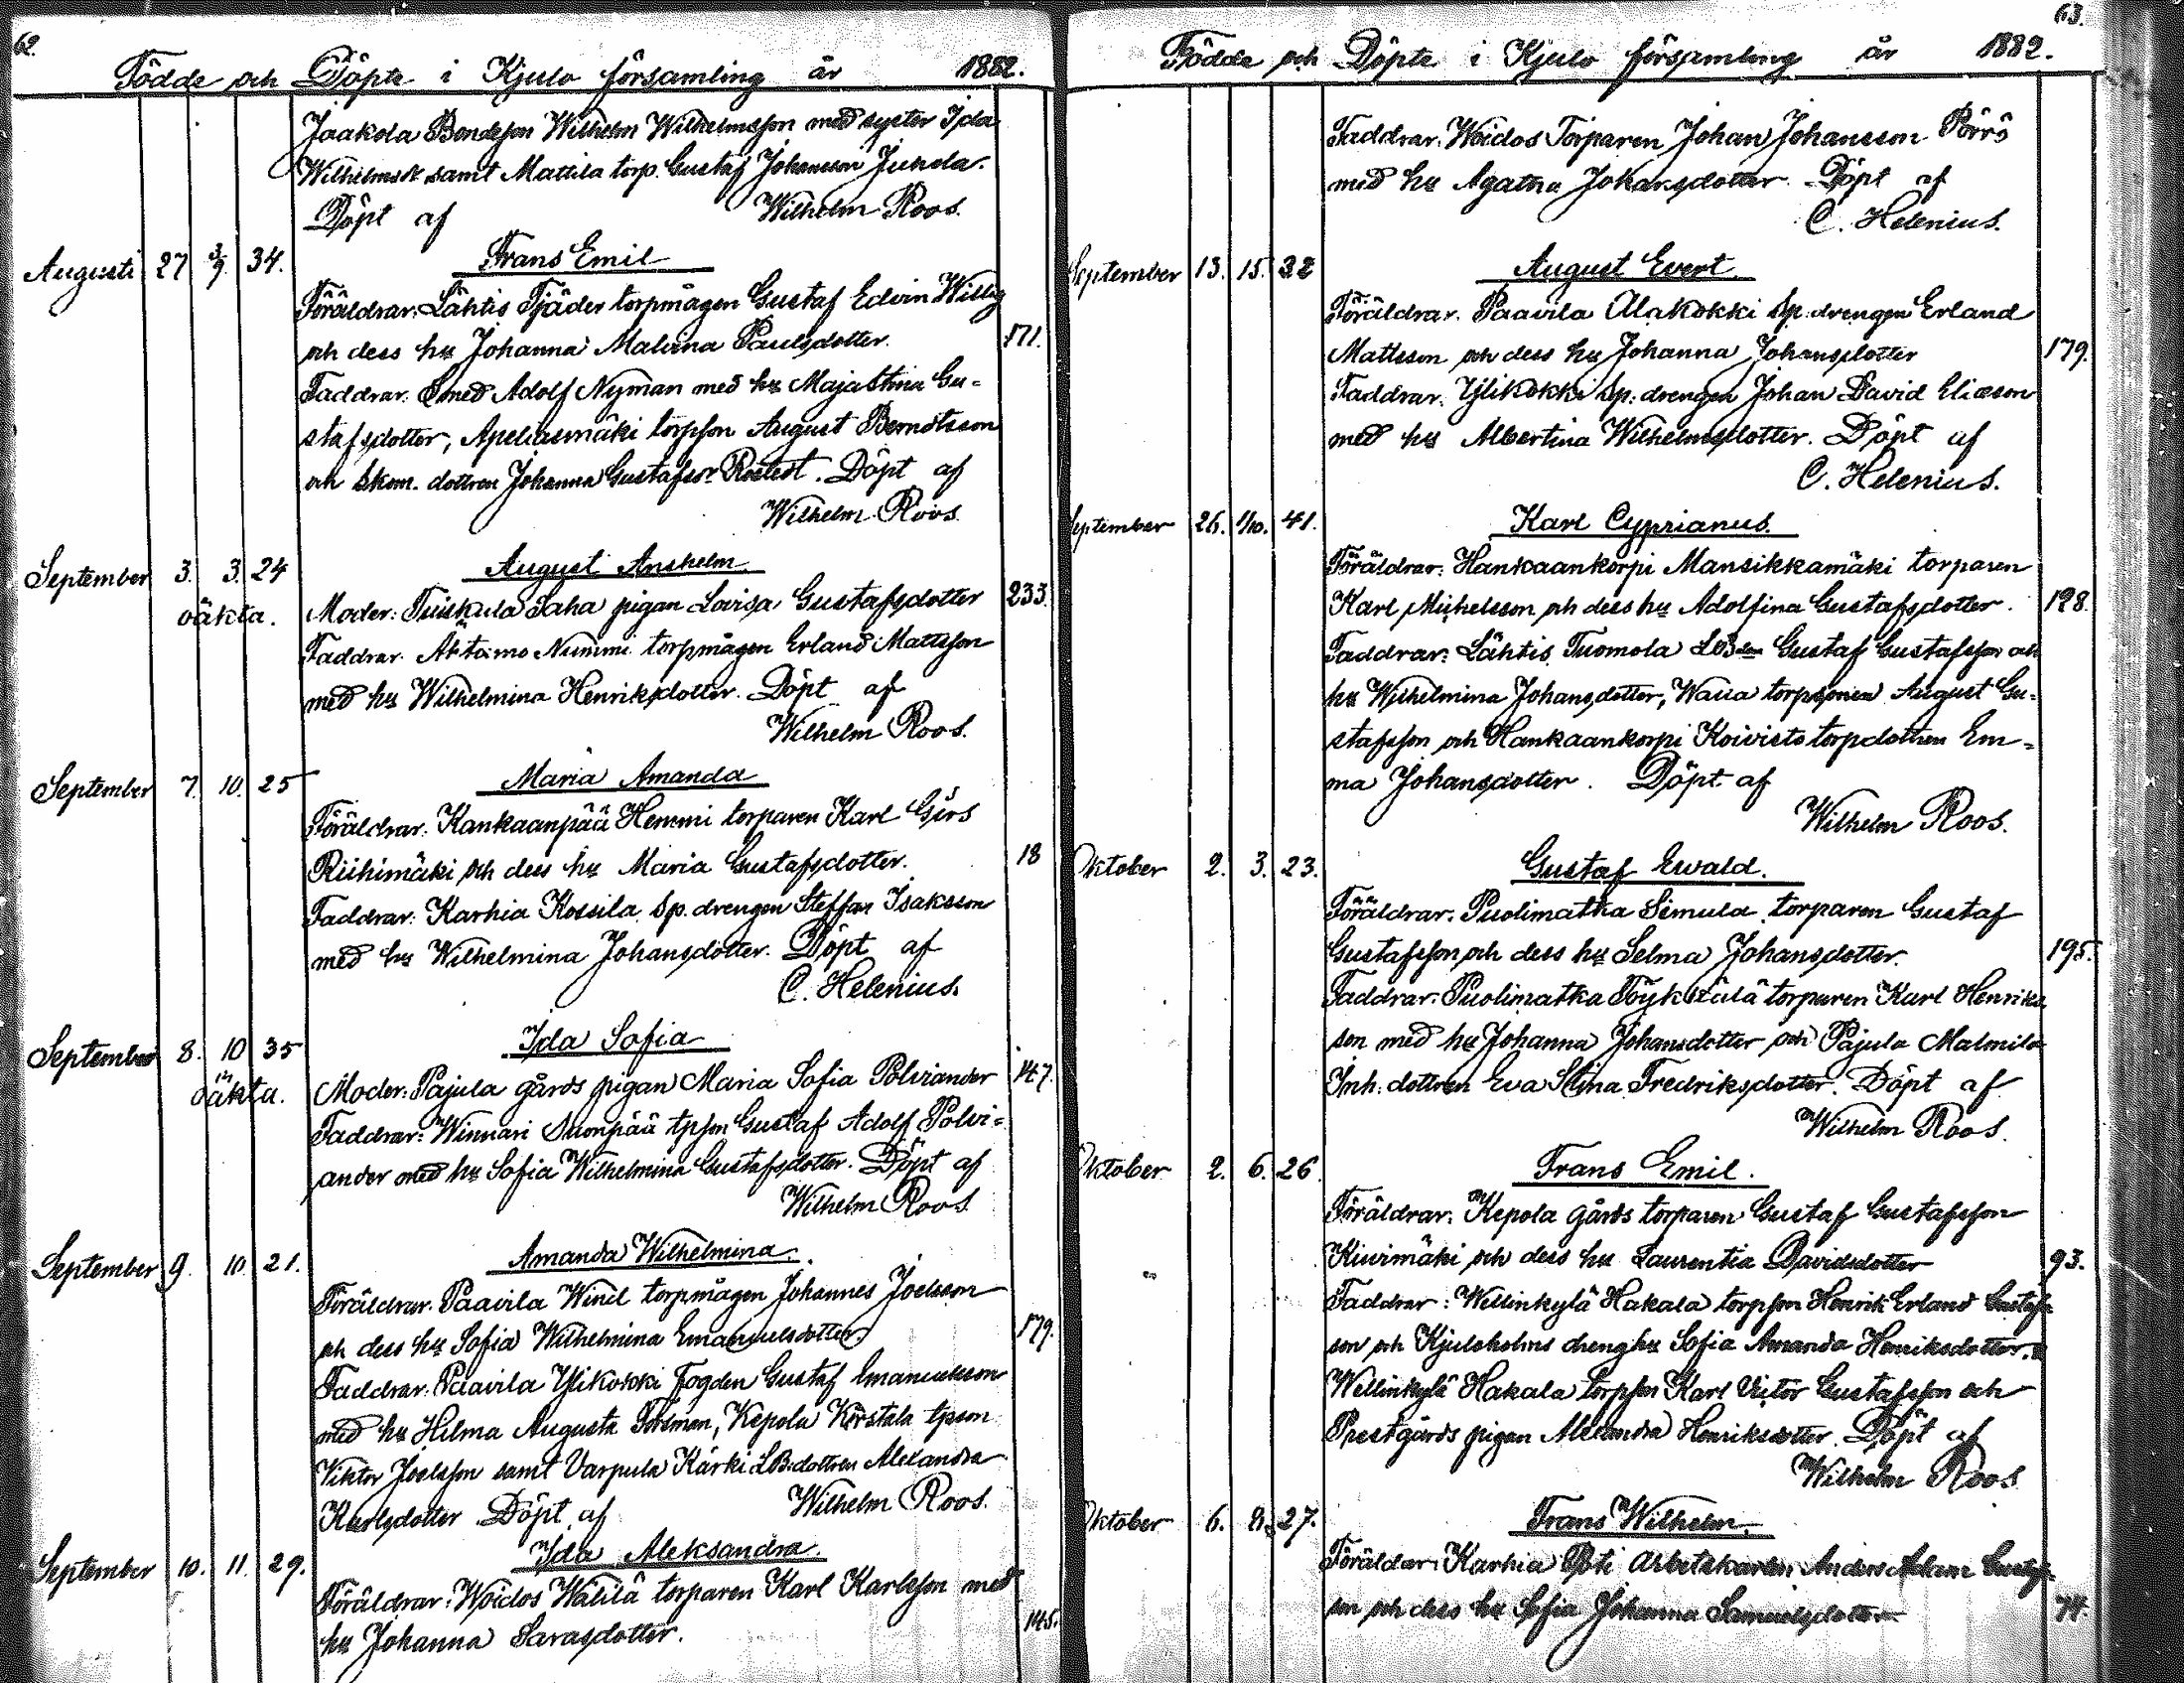 62.
Födde och Döpte i Kjulo församling år 1882.
Jaakola Bondeson Wilhelm Wilhelmsson med syster Ida
Wilhelmsdr samt Mattila torp. Gustaf Johansson Junda.
Döpt af Wilhelm Roos.
Augusti 27 3/9. 34. Frans Emil
Föräldrar: Lähtis Tjäder torpmågen Gustaf Edvin Willig
och dess hu Johanna Malvina Paulsdotter. 171.
Faddrar: Smed Adolf Nyman med hu Maja Stina Gu-
stafsdotter, Apeliasmäki torpson August Berndtsson
och Skom. dottren Johanna Gustafsdr Rostedt. Döpt af
Wilhelm Roos.
September 3. 3. 24 August Anshelm.
oäkta. Moder: Tuiskula Saha pigan Lovisa Gustafsdotter 233.
Faddrar. Aktamo Nummi torpmågen Erland Mattsson
med hu Wilhelmina Henriksdotter. Döpt af
Wilhelm Roos.
September 7. 10. 25 Maria Amanda
Föräldrar: Kankaanpää Hemmi torparen Karl Girs
Riihimäki och dess hu Maria Gustafsdotter. 18
Faddrar: Karhia Kossila Sp. drengen Steffan Isaksson
med hu Wilhelmina Johansdotter. Döpt af
C. Helenius.
September 8. 10 35 Ida Sofia
oäkta. Moder: Pajula gårds pigan Maria Sofia Polviander 147.
Faddrar: Winnari Suonpää tpson Gustaf Adolf Polvi-
ander med hu Sofia Wilhelmina Gustafsdotter. Döpt af
Wilhelm Roos.
September 9. 10. 21. Amanda Wilhelmina.
Föräldrar. Paavila Winil torpmågen Johannes Joelsson
och dess hu Sofia Wilhelmina Emanuelsdotter. 179.
Faddrar. Paavila Ylikokki Fogden Gustaf Emanuelsson
med hu Hilma Augusta Forsman, Kepola Korstala tpson
Viktor Joelsson samt Varpula Kärki LB.dottren Alexandra
Karlsdotter Döpt af Wilhelm Roos.
September 10. 11. 29. Ida Aleksandra.
Föräldrar: Woidos Wälilä torparen Karl Karlsson med
hu Johanna Sarasdotter. 145.
63.
Födde och Döpte i Kjulo församling år 1882.
Faddrar: Woidos Torparen Johan Johansson Pörrö
med hu Agatha Johansdotter. Döpt af
C. Helenius.
September 13. 15. 32 August Evert.
Föräldrar. Paavila Alakokki Sp. drengen Erland
Mattsson och dess hu Johanna Johansdotter 179.
Faddrar. Ylikokki Sp: drengen Johan David Eliasson
med hu Albertina Wilhelmsdotter. Döpt af
C. Helenius.
September 26. 1/10. 41. Karl Cyprianus.
Föräldrar: Hankaankorpi Mansikkamäki torparen
Karl Michelsson och dess hu Adolfina Gustafsdotter. 128.
Faddrar: Lähtis Tuomola LBden Gustaf Gustafsson och
hu Wilhelmina Johansdotter, torpsonen August Gu-
stafsson och Hankaankorpi Koivisto torpdottren Em-
ma Johansdotter. Döpt af
Wilhelm Roos.
Oktober 2. 3. 23. Gustaf Ewald.
Föräldrar: Puolimatka Simula torparen Gustaf
Gustafsson och dess hu Selma Johansdotter. 195.
Faddrar: Puolimatka Töykkälä torparen Karl Henriks-
son med hu Johanna Johansdotter och Pajula Malmila
Inh: dottren Eva Stina Fredriksdotter. Döpt af
Wilhelm Roos.
Oktober 2. 6. 26. Frans Emil.
Föräldrar: Kepola gårds torparen Gustaf Gustafsson
Kiurimäki och dess hu Laurentia Davidsdotter 93.
Faddrar: Wellinkylä Hakala torpson Henrik Erland Gustafs-
son och Kjuloholms dreng hu Sofia Amanda Henriksdotter.
Wellinkylä Hakala torpson Karl Victor Gustafsson och
Prestgårds pigan Alexandra Henriksdotter. Döpt af
Wilhelm Roos.
Oktober 6. 8. 27. Frans Wilhelm.
Föräldrar: Karhia Poti Arbetskarlen Anders Adam Gustafs-
son och dess hu Sofia Johanna Samuelsdotter. 74.